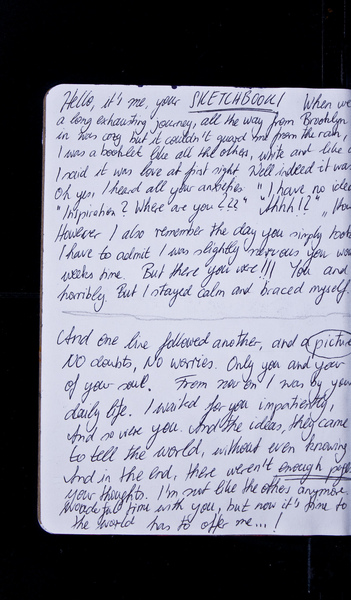 Hello, it's me, your SKETCHBOOK! When we
a long exhausting journey, all the way from Brooklyn
in was cozy but it couldn't guard me from the rain,
I was a booklet like all the others, white and like
I said it was love at first sight. Well indeed it was
Oh yes, I heard all your anxieties "I have no idea
"Inspiration? Where are you???" "Ahhh!?"
However I also remember the day you simply
I have to admit I was slightly nervous you
weeks time. But there you were!!! You and
horribly. But I stayed calm and braced myself
And one line followed another, and a picture
NO doubts, NO worries. Only you and your
of your soul. From now on I was by your
daily life. I waited for you impatiently,
And so were you. And the ideas, they came
to tell the world, without even knowing
And in the end, there weren't enough
your thoughts. I'm not like the others anymore.
wonderful time with you, but now it's time to
the world has to offer me...!